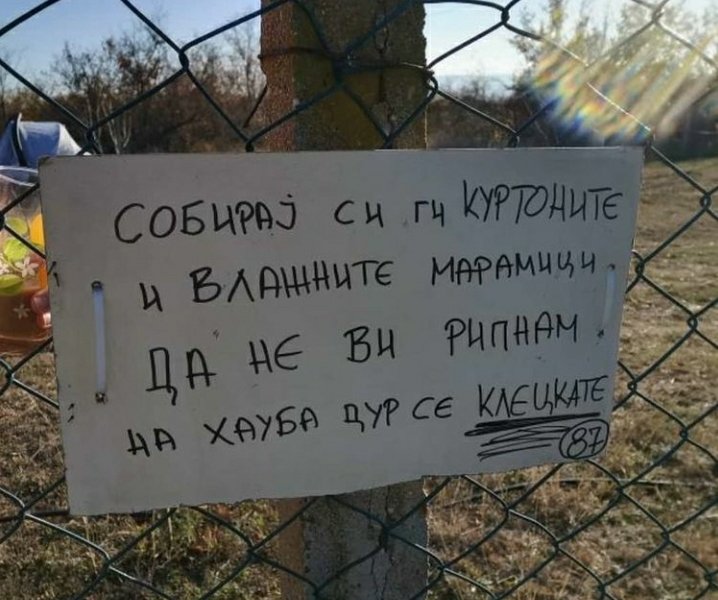 СОБИРАЈ СИ ГИ КУРТОНИТЕ
И ВЛАЖНИТЕ МАРАМИЦИ
ДА НЕ ВИ РИПНАМ
НА ХАУБА ДУР СЕ КЛЕЦКАТЕ
87